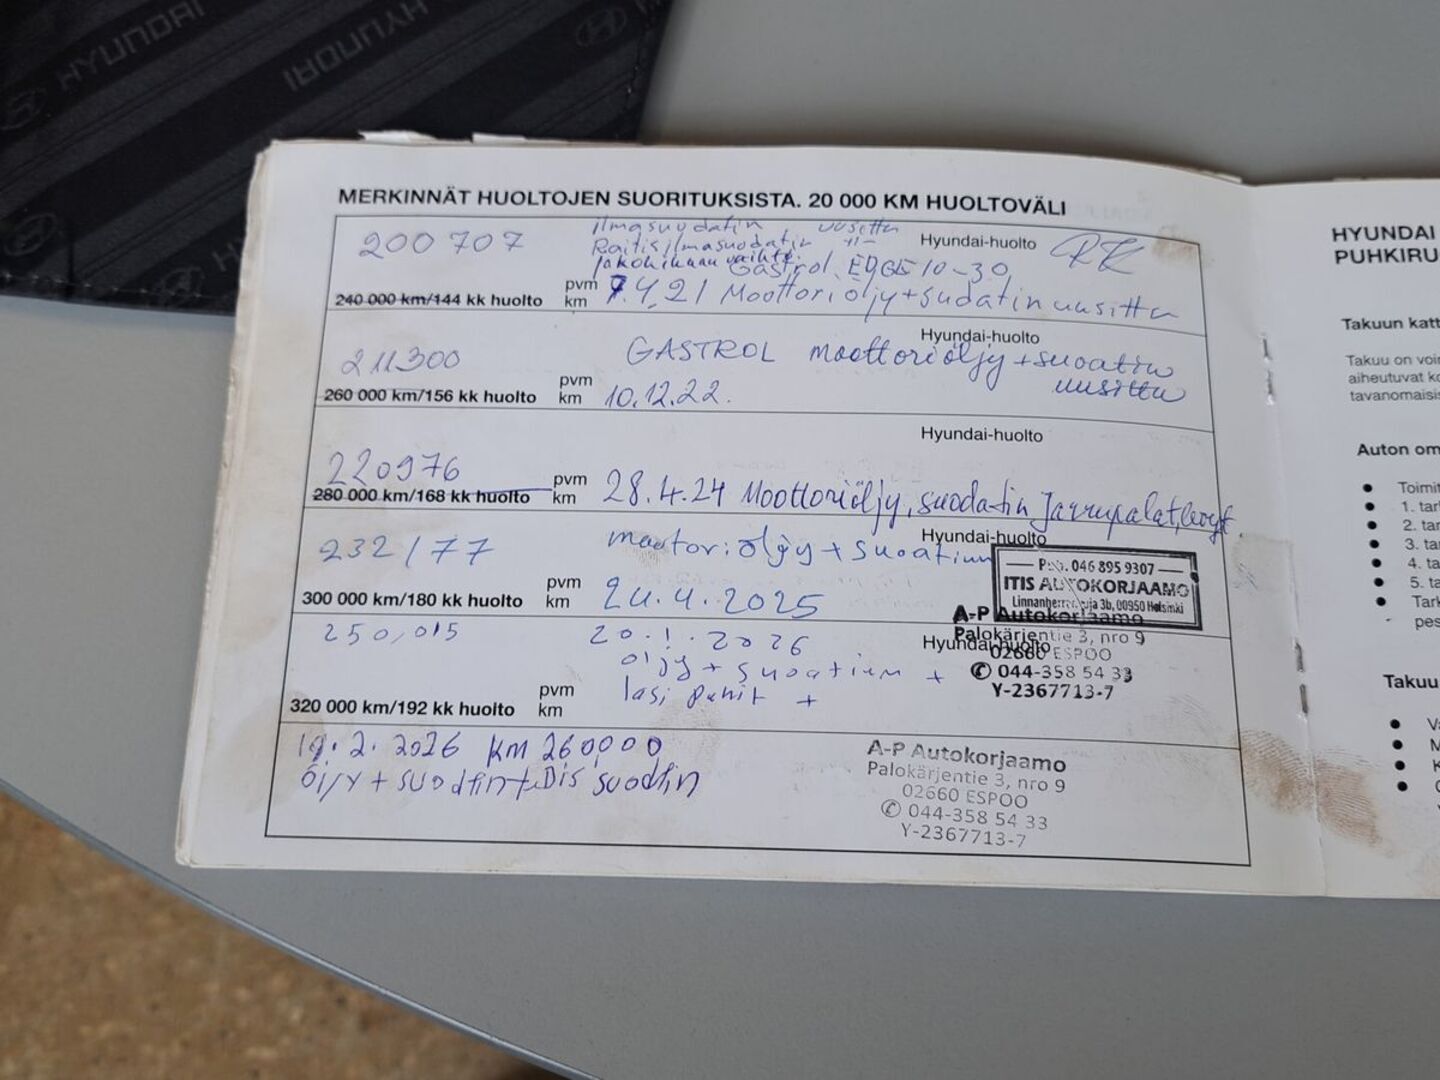 HYUNDAI
HYUNDAI
MERKINNÄT HUOLTOJEN SUORITUKSISTA. 20 000 KM HUOLTOVÄLI
200 707
ilmasuodatin uusittu
Raitisilmasuodatin -11-
Jakohihnan vaihto.
Gastrol EDGE 10-30
Hyundai-huolto
RK
240 000 km/144 kk huolto
pvm
km
7.4.21 Moottoriöljy+sudatin uusittu
Hyundai-huolto
211300
GASTROL moottoriöljy+suoatin
uusittu
260 000 km/156 kk huolto
pvm
km
10.12.22.
Hyundai-huolto
220976
280 000 km/168 kk huolto
pvm
km
28.4.24 Moottoriöljy, suodatin Jarrupalat,levyt
Hyundai-huolto
232177
moottoriöljy + suoatium
300 000 km/180 kk huolto
pvm
km
24.4.2025
046 895 9307
ITIS AUTOKORJAAMO
3b, 00950 Helsinki
A-P Autokorjaamo
Palokärjentie 3, nro 9
02660 ESPOO
044-358 54 33
Y-2367713-7
Hyundai-huolto
250,015
20.1.2026
öljy + suoatium +
lasi +
320 000 km/192 kk huolto
pvm
km
19.2.2026 km 260,000
öljy + suodtin+Dis suodtin
A-P Autokorjaamo
Palokärjentie 3, nro 9
02660 ESPOO
044-358 54 33
Y-2367713-7
HYUNDAI
PUHKIRU
Takuun katt
Takuu on voi
aiheutuvat ko
tavanomaisis
Auton om
Toimit
1. tar
2. tar
3. tar
4. ta
5. ta
Tark
pes
Takuu